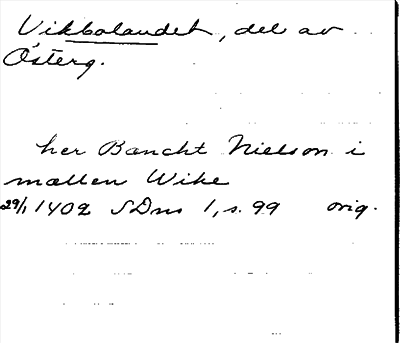 Vikbolandet, del av
Österg.
her Bancht Nielson i
mællen Wike
29/1 1402 SDns 1, s. 99 orig.